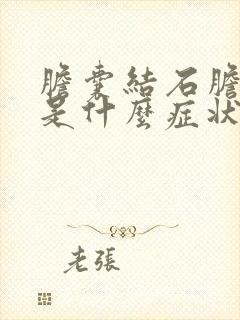 膽囊結石膽
是什麼症狀
老張